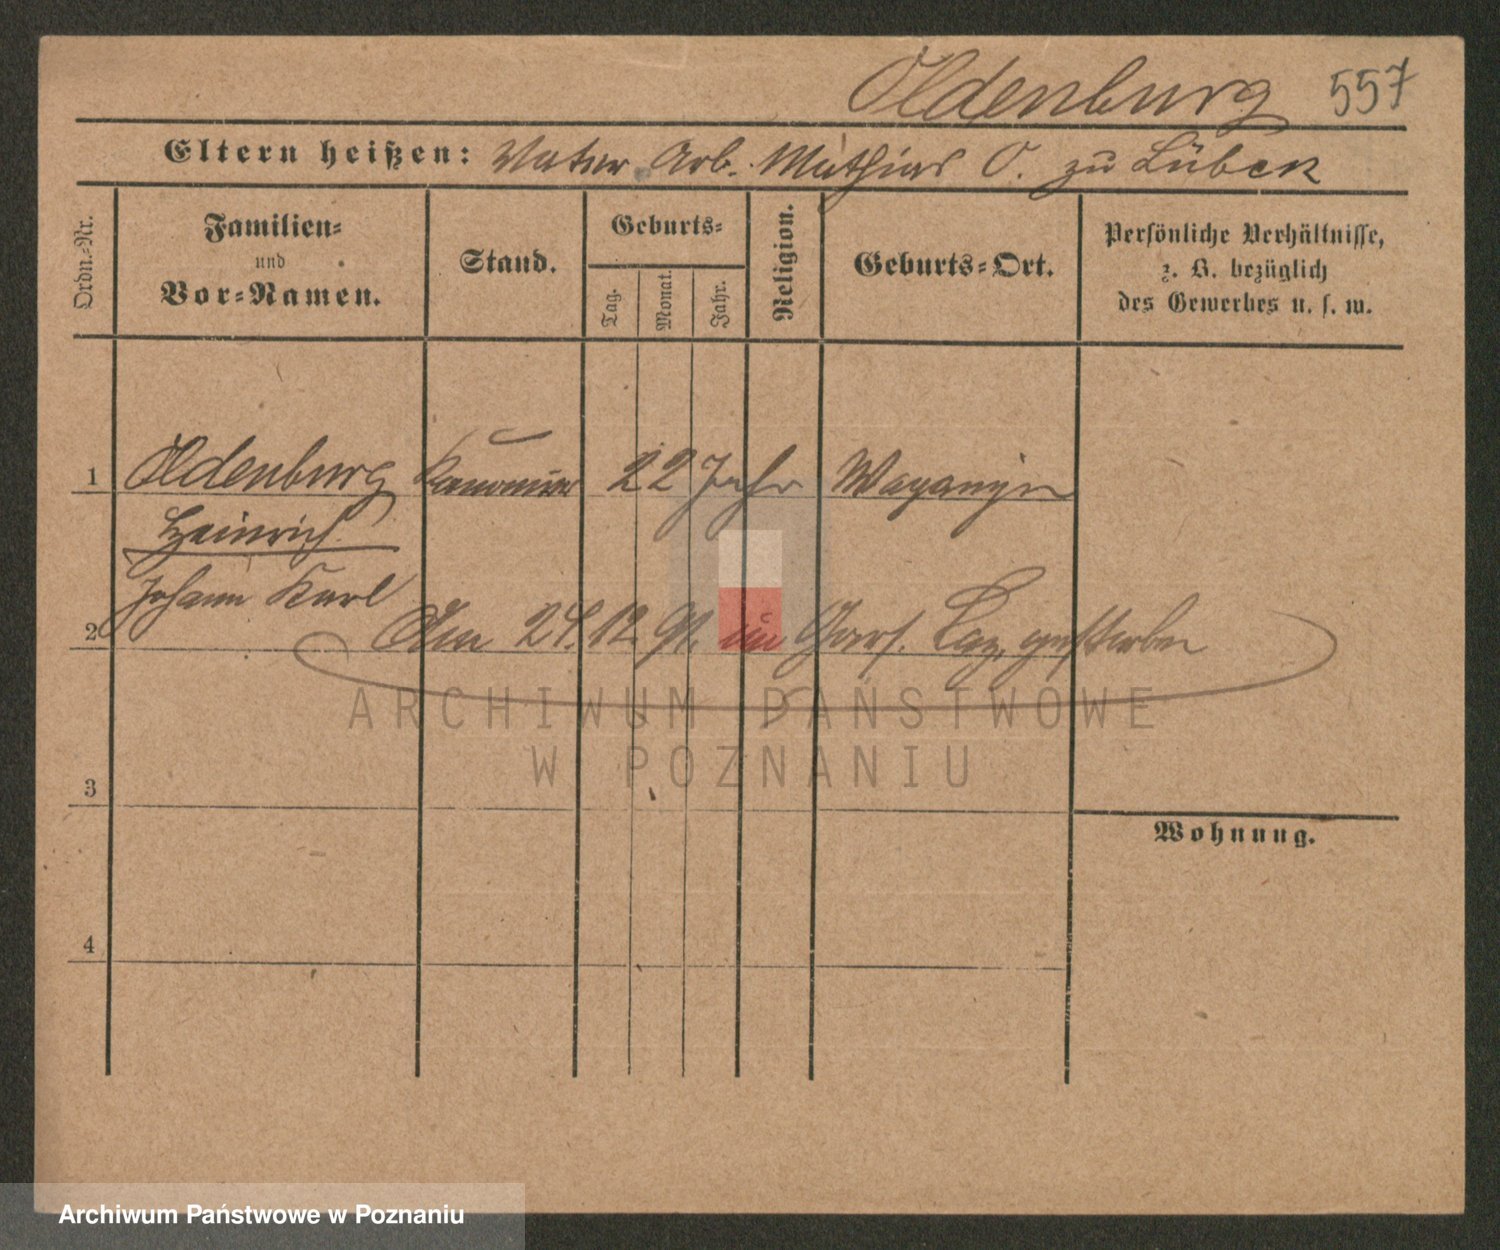 Oldenburg 557
Eltern heißen: Vater Arb. Mathias O. zu Lübeck
Ordn.-Nr.
Familien-
und
Vor-Namen.
Stand.
Geburts-
Tag.
Monat.
Jahr.
Religion.
Geburts-Ort.
Persönliche Verhältnisse,
z. B. bezüglich
des Gewerbes u. s. w.
1 Oldenburg Kanonier 22 Jahr
Heinrich
Johann Karl
2 Den 24.12.91. im Garn. Laz. gestorben
ARCHIWUM PAŃSTWOWE
W POZNANIU
3
Wohnung.
4
Archiwum Państwowe w Poznaniu